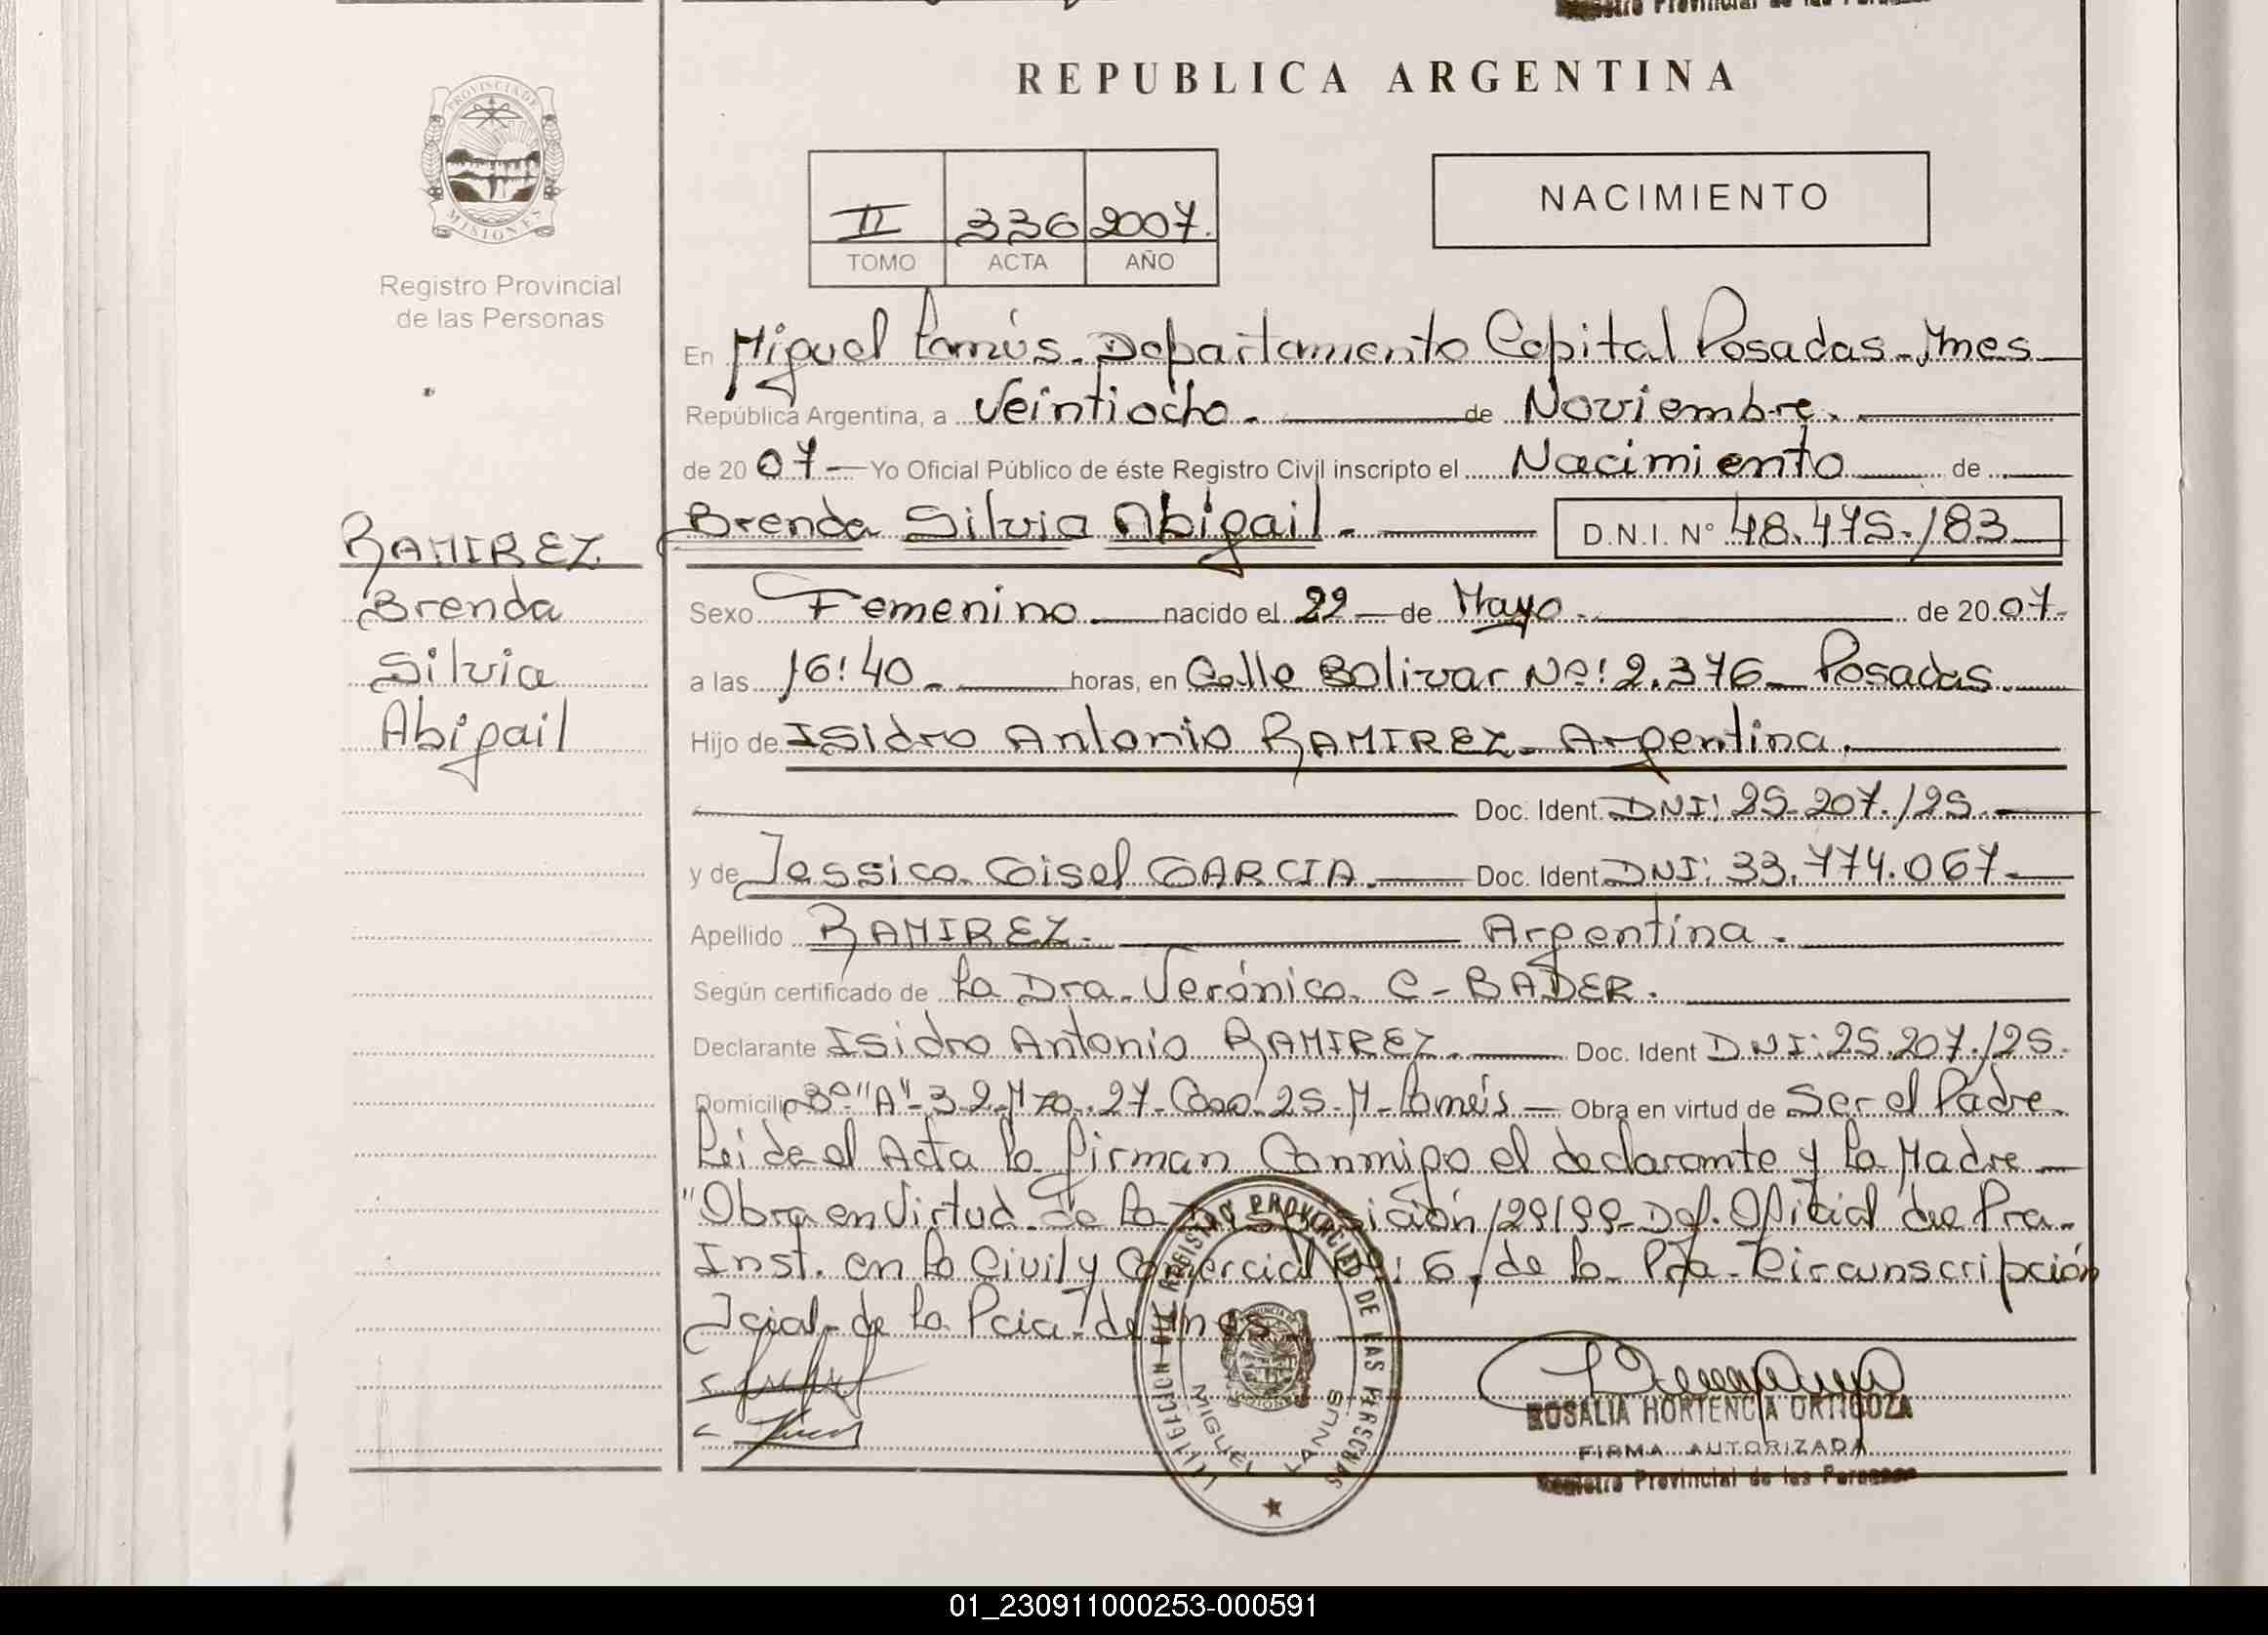 REPUBLICA ARGENTINA
PROVINCIA DE
MISIONES
Registro Provincial
de las Personas
II 336 2007.
TOMO ACTA AÑO
NACIMIENTO
En Miguel Lanús. Departamento Capital Posadas-Mnes
República Argentina, a Veintiocho. de Noviembre.
de 2007 Yo Oficial Público de éste Registro Civil inscripto el Nacimiento de
Brenda Silvia Abigail. D.N.I. Nº 48.475.183
RAMIREZ
Brenda
Silvia
Abigail
Sexo Femenino. nacido el 22 de Mayo. de 2007.
a las 16:40 horas, en Calle Bolivar Nº: 2.376 Posadas.
Hijo de Isidro Antonio RAMIREZ- Argentina.
Doc. Ident. DNI: 25.207.125.
y de Jessica Gisel GARCIA. Doc. Ident DNI: 33.774.067.
Apellido RAMIREZ. Argentina.
Según certificado de La Dra. Verónica C- BADER.
Declarante Isidro Antonio RAMIREZ. Doc. Ident DNI: 25.207.125.
Domicilio Bº "A"-3-2-Mza. 27-Casa 25-M-Lanús Obra en virtud de Ser el Padre.
Leída el Acta la firman Conmigo el declarante y la Madre
"Obra en Virtud de la Disposición 129/99- Del. Oficial de Pra.
Inst. en lo Civil y Comercial Nº: 6, de la Pra. Circunscripción
Jcial- de la Pcia. de Mnes
DELEGACION DEL REGISTRO PROVINCIAL DE LAS PERSONAS
MIGUEL LANUS
ROSALIA HORTENCIA ORTIGOZA
FIRMA AUTORIZADA
Registro Provincial de las Personas
01_230911000253-000591